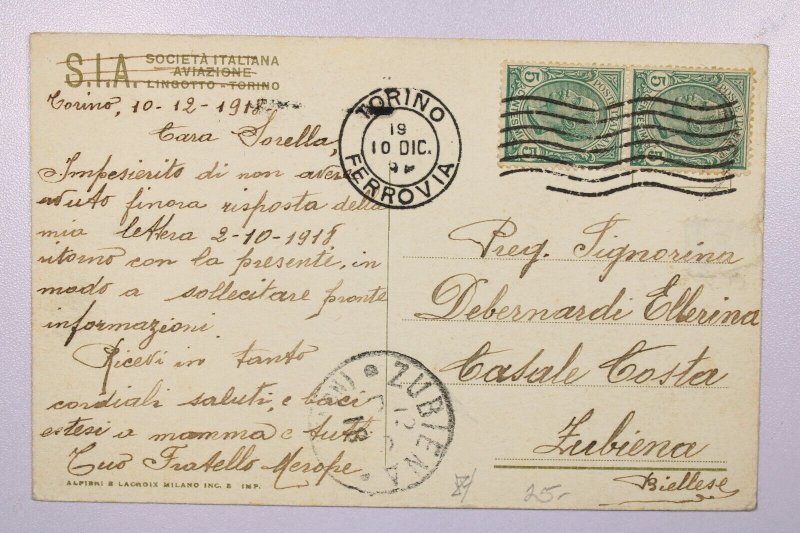 S.I.A. SOCIETÀ ITALIANA
AVIAZIONE
LINGOTTO - TORINO
Torino, 10-12-1918
Cara Sorella,
Impesierito di non aver
avuto finora risposta della
mia lettera 2-10-1918,
ritorno con la presenti, in
modo a sollecitare pronte
informazioni.
Ricevi in tanto
cordiali saluti, e baci
estesi a mamma e tutti
Tuo Fratello Merope
ALFIERI & LACROIX MILANO INC. E IMP.
TORINO
19
10 DIC.
FERROVIA
5 POSTE ITALIANE 5
5 POSTE ITALIANE 5
Preg. Signorina
Debernardi Ellerina
Casale Costa
Zubiena
Biellese
ZUBIENA
12
18
25.-